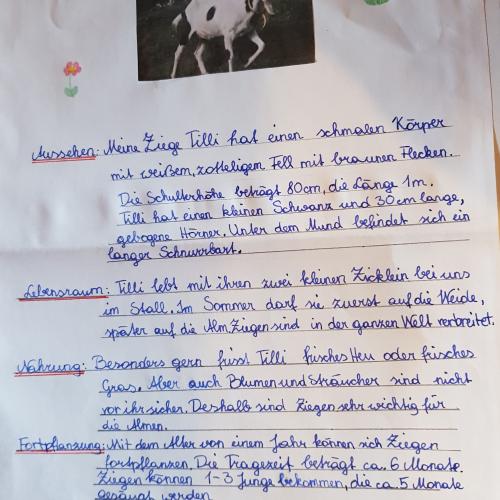 Aussehen: Meine Ziege Tilli hat einen schmalen Körper
mit weißem, zotteligem Fell mit braunen Flecken.
Die Schulterhöhe beträgt 80cm, die Länge 1m.
Tilli hat einen kleinen Schwanz und 30cm lange,
gebogene Hörner. Unter dem Mund befindet sich ein
langer Schnurrbart.
Lebensraum: Tilli lebt mit ihren zwei kleinen Zicklein bei uns
im Stall. Im Sommer darf sie zuerst auf die Weide,
später auf die Alm. Ziegen sind in der ganzen Welt verbreitet.
Nahrung: Besonders gern frisst Tilli frisches Heu oder frisches
Gras. Aber auch Blumen und Sträucher sind nicht
vor ihr sicher. Deshalb sind Ziegen sehr wichtig für
die Almen.
Fortpflanzung: Mit dem Alter von einem Jahr können sich Ziegen
fortpflanzen. Die Tragezeit beträgt ca. 6 Monate.
Ziegen können 1-3 Junge bekommen, die ca. 5 Monate
gesäugt werden